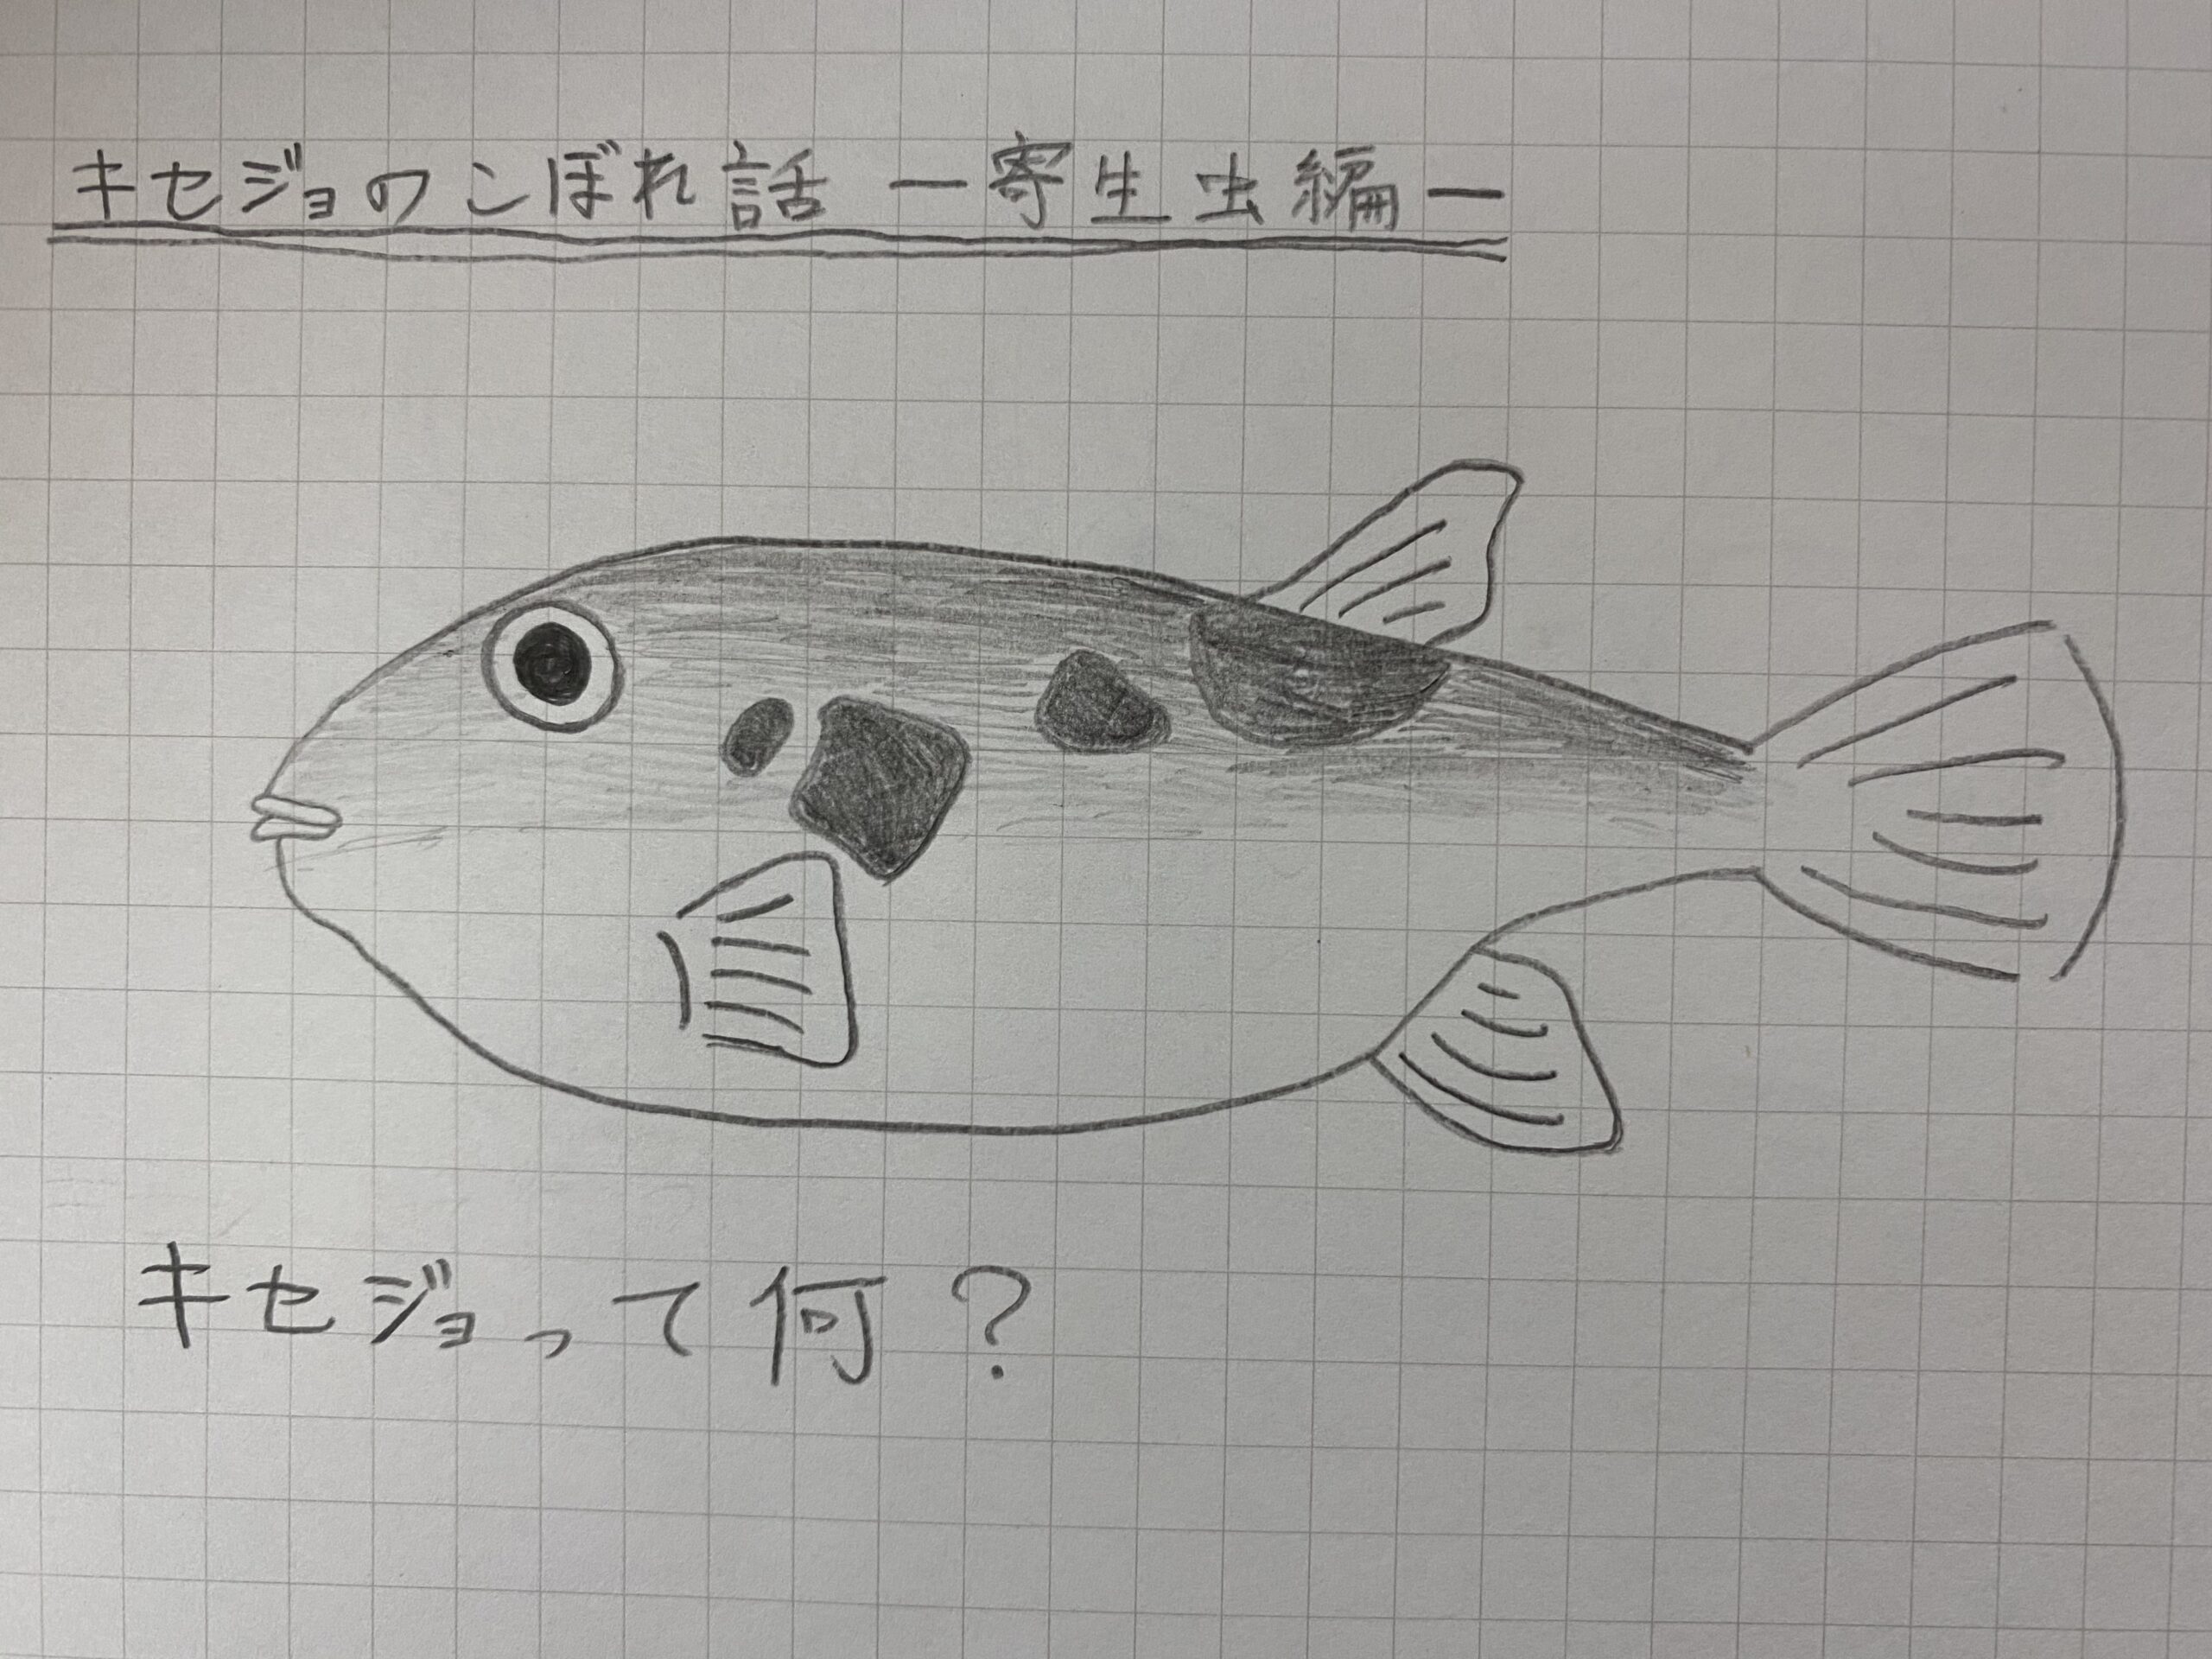 キセジョのこぼれ話 ー寄生虫編ー
キセジョって何?